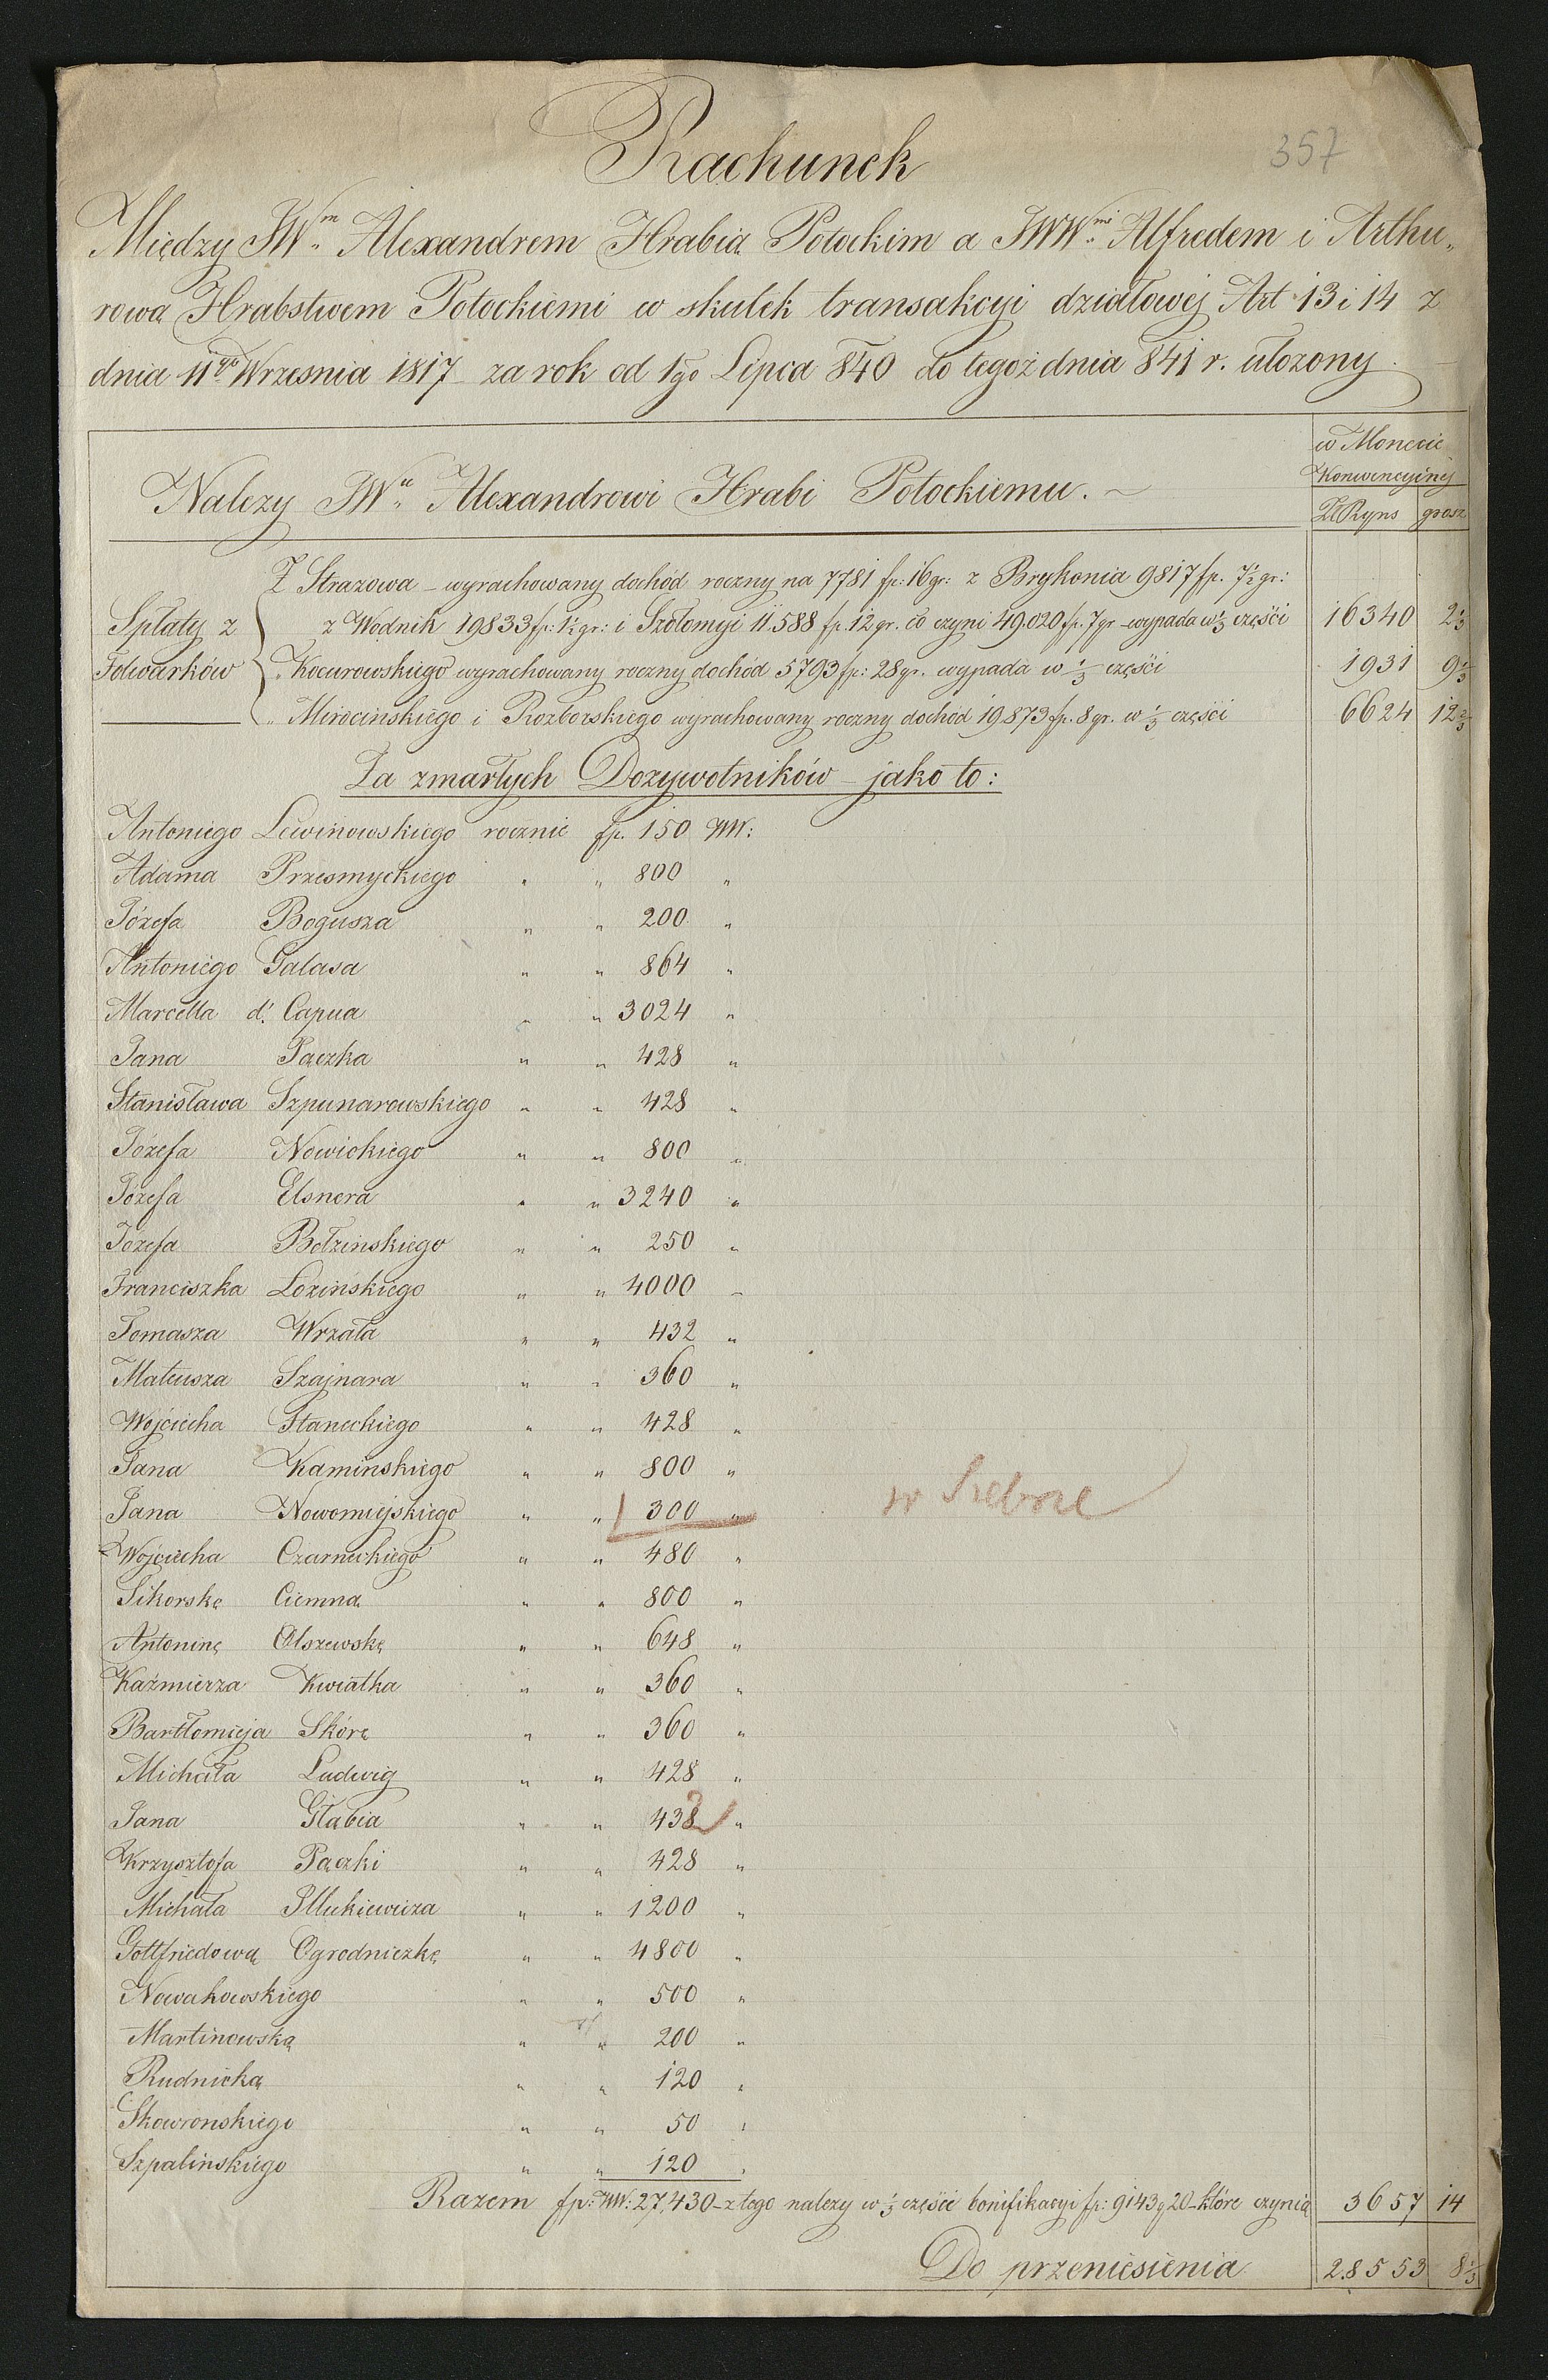 357
Rachunek
Między JWm Alexandrem Hrabią Potockim a JWWmi Alfredem i Arthu„
rową Hrabstwem Potockiemi w skutek transakcyi działowej Art 13 i 14 z
dnia 11go Wrzesnia 1817 za rok od 1go Lipca 840 do tegoż dnia 841 r. ułozony.
Nalezy JWu Alexandrowi Hrabi Potockiemu.
w Monecie
Konwencyjnej
Zł Ryns grosz
Z Strazowa – wyrachowany dochód roczny na 7781 fp: 16 gr: z Brykonia 9817 fp. 7½ gr:
Spłaty z z Wodnik 19833 fp: 1½ gr: i Szołomyi 11.588 fp. 12 gr. co czyni 49.020 fp. 7 gr – wypada w ⅓ części 16340 2⅓
Folwarków „ Kocurowskiego wyrachowany roczny dochód 5793 fp: 28 gr. wypada w ⅓ części 1931 9⅓
„ Mirocińskiego i Rozborskiego wyrachowany roczny dochód 19.873 fp. 8 gr. w ⅓ części 6624 12⅔
Za zmarłych Dozywotników – jako to:
Antoniego Lewinowskiego rocznie fp. 150 WW:
Adama Przesmyckiego „ „ 800 „
Józefa Bogusza „ „ 200 „
Antoniego Galasa „ „ 864 „
Marcella d'. Capua „ „ 3024 „
Jana Pączka „ „ 428 „
Stanisława Szpunarowskiego „ „ 428 „
Józefa Nowickiego „ „ 800 „
Józefa Elsnera „ „ 3240 „
Józefa Bełzinskiego „ „ 250 „
Franciszka Lozińskiego „ „ 4000 „
Tomasza Wrzała „ „ 432 „
Mateusza Szajnara „ „ 360 „
Wojciecha Staneckiego „ „ 428 „
Jana Kaminskiego „ „ 800 „
Jana Nowomiejskiego „ „ 300 „ w Srebrze
Wojciecha Czarneckiego „ „ 480 „
Sikorskę Ciemną „ „ 800 „
Antoninę Olszewskę „ „ 648 „
Kaźmierza Kwiatka „ „ 360 „
Bartłomieja Skórę „ „ 360 „
Michała Ludwig „ „ 428 „
Jana Głabia „ „ 438 „
2
Krzysztofa Pączki „ „ 428 „
Michała Illukiewicza „ „ 1200 „
Gottfriedową Ogrodniczkę „ „ 4800 „
Nowakowskiego „ „ 500 „
Martinowską „ „ 200 „
Rudnicką „ „ 120 „
Skowronskiego „ „ 50 „
Szpalinskiego „ „ 120 „
Razem fp: WW: 27,430 – z tego nalezy w ⅓ części bonifikacyi fp: 9143 g 20 – które czynią 3657 14
Do przeniesienia 28553 8⅓